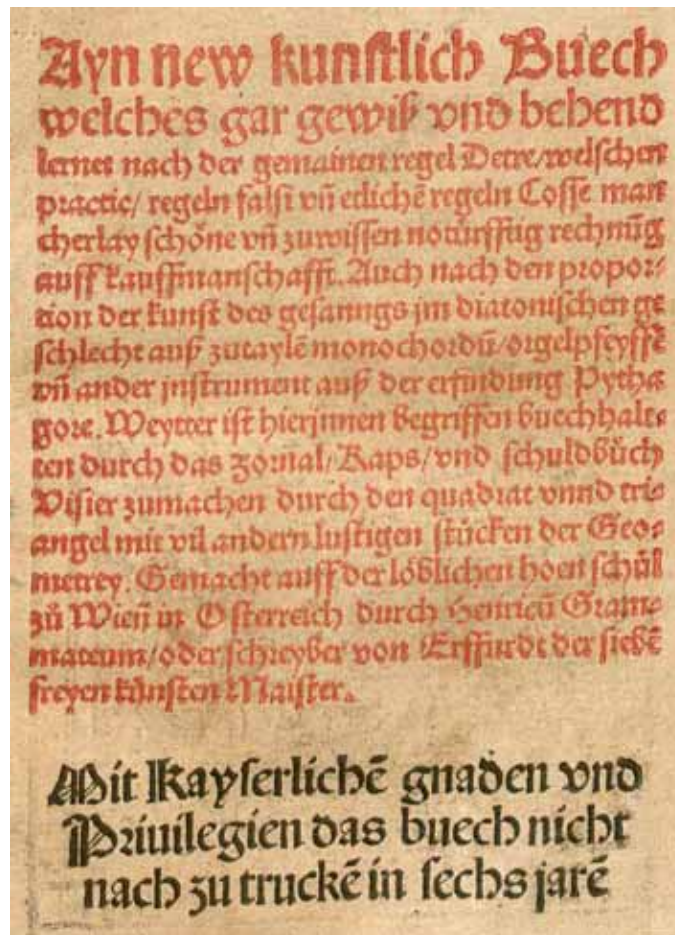 Ayn new kunstlich Buech
welches gar gewiß vnd behend
lernet nach der gemainen regel Detre/welschen
practic/ regeln falsi vñ etlichẽ regeln Cosse man
cherlay schöne vñ zuwissen notürfftig rechnũg
auff kauffmanschafft. Auch nach den propor⸗
tion der kunst des gesanngs jm diatonischen ge
schlecht auß zutaylẽ monochordũ/orgelpfeyffẽ
vñ ander jnstrument auß der erfindung Pytha
gore. Weytter ist hierjnnen begriffen buechhalt⸗
ten durch das zornal/Kaps/vnd schuldbůch
Visier zumachen durch den quadrat vnnd tri⸗
angel mit vil andern lustigen stücken der Geo⸗
metrey. Gemacht auff der löblichen hoen schůl
zů Wieñ in Osterreich durch Henricũ Gram⸗
mateum/oder schreyber von Erffurdt der siebẽ
freyen künsten Maister.
Mit Kayserlichẽ gnaden vnd
Priuilegien das buech nicht
nach zu truckẽ in sechs jarẽ